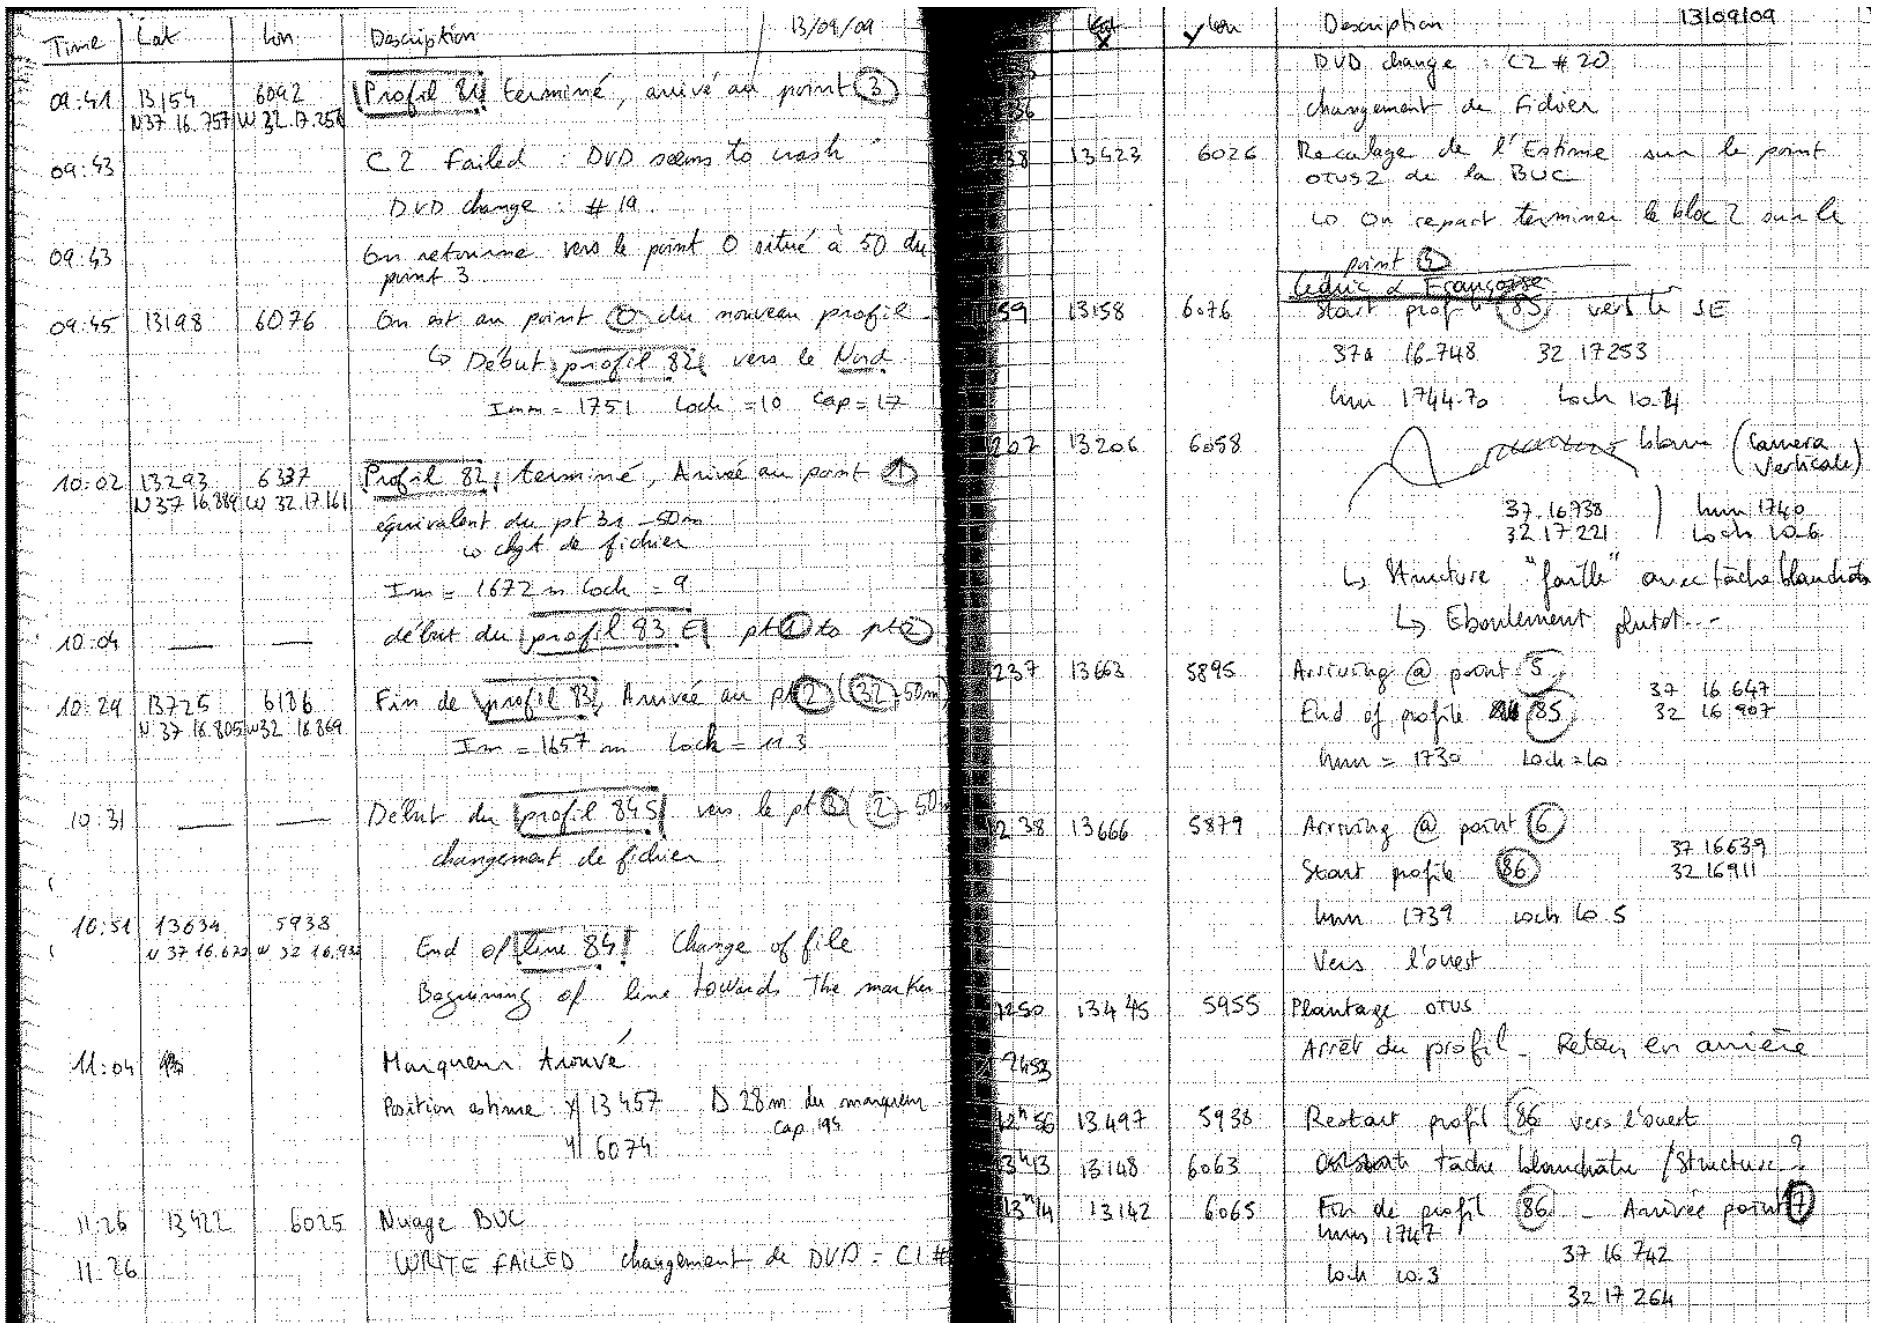 Time Lat Lon Description 13/09/09
09:41 13154 6092 Profil 81 terminé, arrivé au point 3
N37 16.757 W 32.17.256
09:43 C2 Failed : DVD seems to crash
DVD change : # 19
09:43 On retourne vers le point 0 situé à 50 du
point 3
09:45 13198 6076 On est au point 0 du nouveau profil
↳ Début profil 82 vers le Nord
Imm = 1751 Loch = 10 Cap = 17
10:02 13293 6337 Profil 82 terminé, Arrivé au point 1
N37 16.889 W 32.17.161
équivalent du pt 31 -50m
↳ chgt. de fichier
Im = 1672 m Loch = 9
10:04 — — début du profil 83 E pt 1 to pt 2
10:29 13725 6186 Fin de profil 83, Arrivé au pt 2 (32 -50m)
N 37 16.805 W32 16.869
Im = 1657 m Lock = 11.3
10:31 — — Début du profil 84S vers le pt 3 (2 - 50m
changement de fichier
10:51 13634 5938
N 37 16.672 W 32 16.932 End of line 84 Change of file
Beginning of line towards the marker
11:04 Marqueur trouvé
Position estime : X 13457 D 28m du marqueur
Y 6074 Cap 194
11:26 13422 6025 Nuage BUC
11:26 WRITE FAILED changement de DVD = C1 #
Lat X Y Lon Description 13/09/09
DVD change : C2 # 20
36 changement de Fichier
38 13423 6026 Recalage de l'Estime sur le point
OTUS2 de la BUC
↳ On repart terminer le bloc 2 sur le
point
Cédric & Françoise
59 13158 6076 Start prof 85 vers le SE
37 16.748 32 17253
Imm 1744.70 Loch 10.4
202 13206 6058 blanc (Camera
Verticale)
37.16738 Imm 1740
32.17221 Loch 10.6
↳ Structure "faille" avec tâche blanchatre
↳ Eboulement plutot..-
237 13663 5895 Arriving @ point 5
37 16 647
End of profile 85 32 16 907
Imm = 1730 Loch = 10
238 13666 5879 Arriving @ point 6
37 16639
Start profile 86 32 16911
Imm 1739 Loch 10.5
Vers l'ouest
1250 13445 5955 Plantage OTUS
Arrêt du profil - Retour en arrière
2453
12h56 13497 5938 Restart profil 86 vers l'ouest
13h13 13148 6063 tâche blanchâtre / Structure ?
13h14 13142 6065 Fin de profil 86 - Arrivée point 7
Imm 1747
37 16 742
Loch 10.3
32 17 264